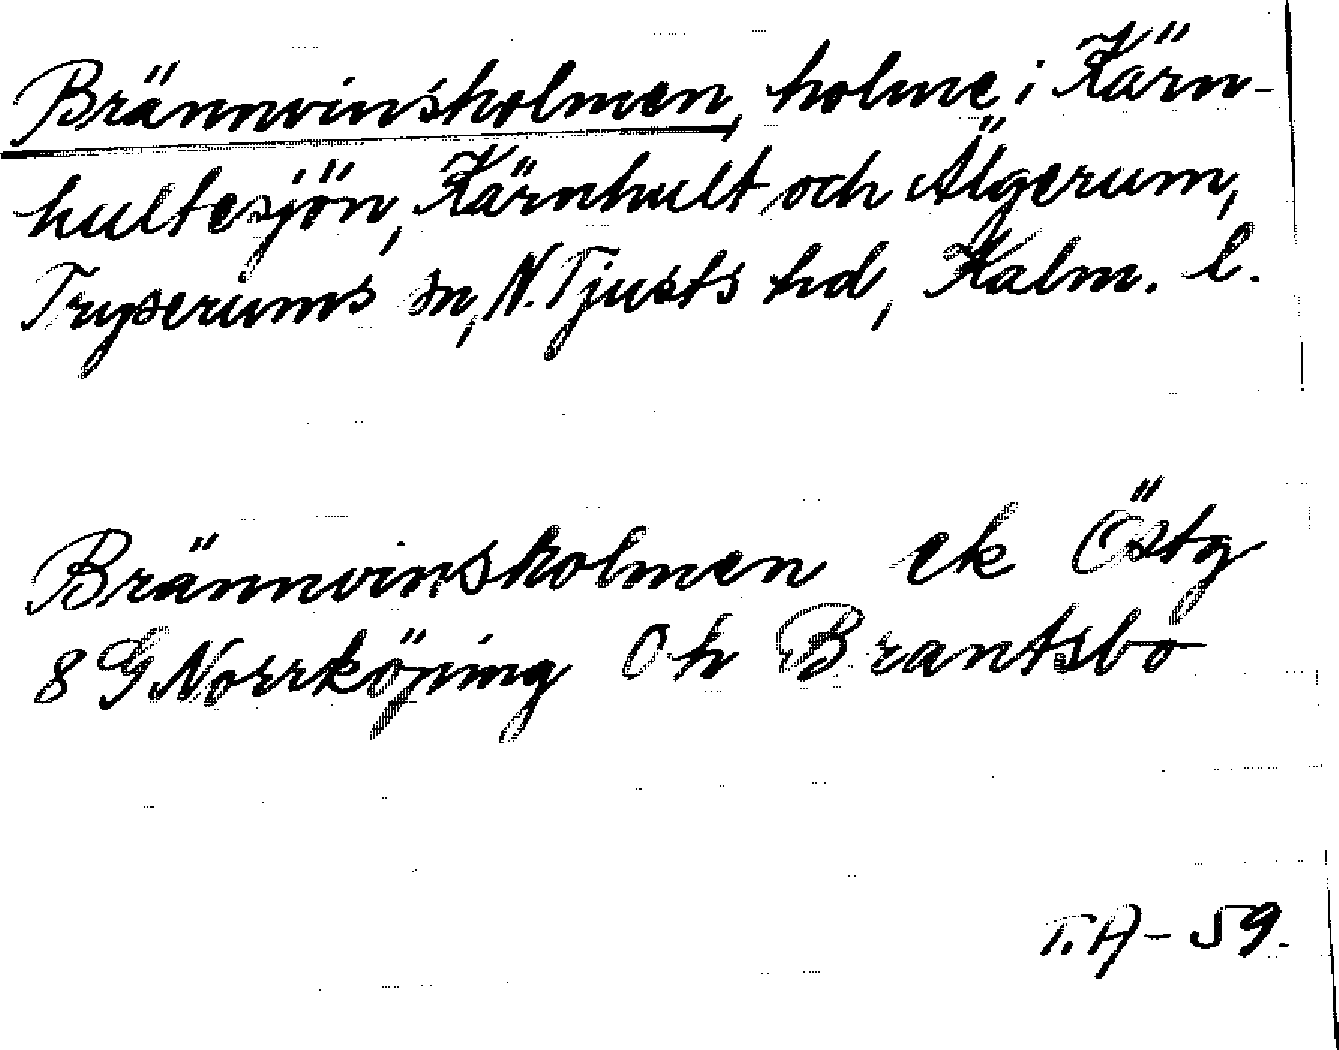 Brännvinsholmen, holme i Kärn-
hultesjön, Kärnhult och Älgerum,
Tryserums sn, N. Tjusts hd, Kalm. l.
Brännvinsholmen ek Östg
8 G Norrköping Oh Brantsbo
T.A - 59.